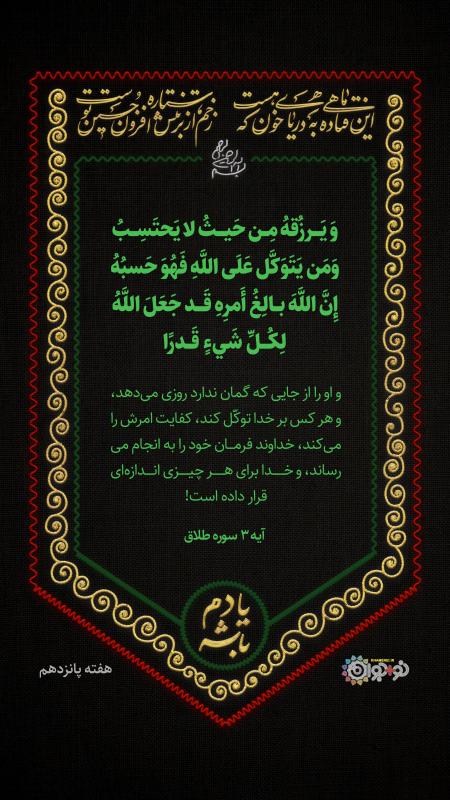 این ماهی فتاده به دریای خون که هست
زخم از ستاره بر تنش افزون حسین توست
وَ يَـرزُقهُ مِـن حَيـثُ لا يَحتَسِـبُ
وَمَن يَتَوَكَّل عَلَى اللَّهِ فَهُوَ حَسبُهُ
إِنَّ اللَّهَ بـالِغُ أَمرِهِ قَـد جَعَلَ اللَّهُ
لِكُـلِّ شَيءٍ قَـدرًا
و او را از جایی که گمان ندارد روزی می‌دهد،
و هر کس بر خدا توکّل کند، کفایت امرش را
می‌کند، خداوند فرمـان خود را به انجام می
رساند، و خـــدا برای هـــر چیـــزی انـدازه‌ای
قرار داده است!
آیه ۳ سوره طلاق
یادم
باشه
هفته پانزدهم
KHAMENEI.IR
نوجوان